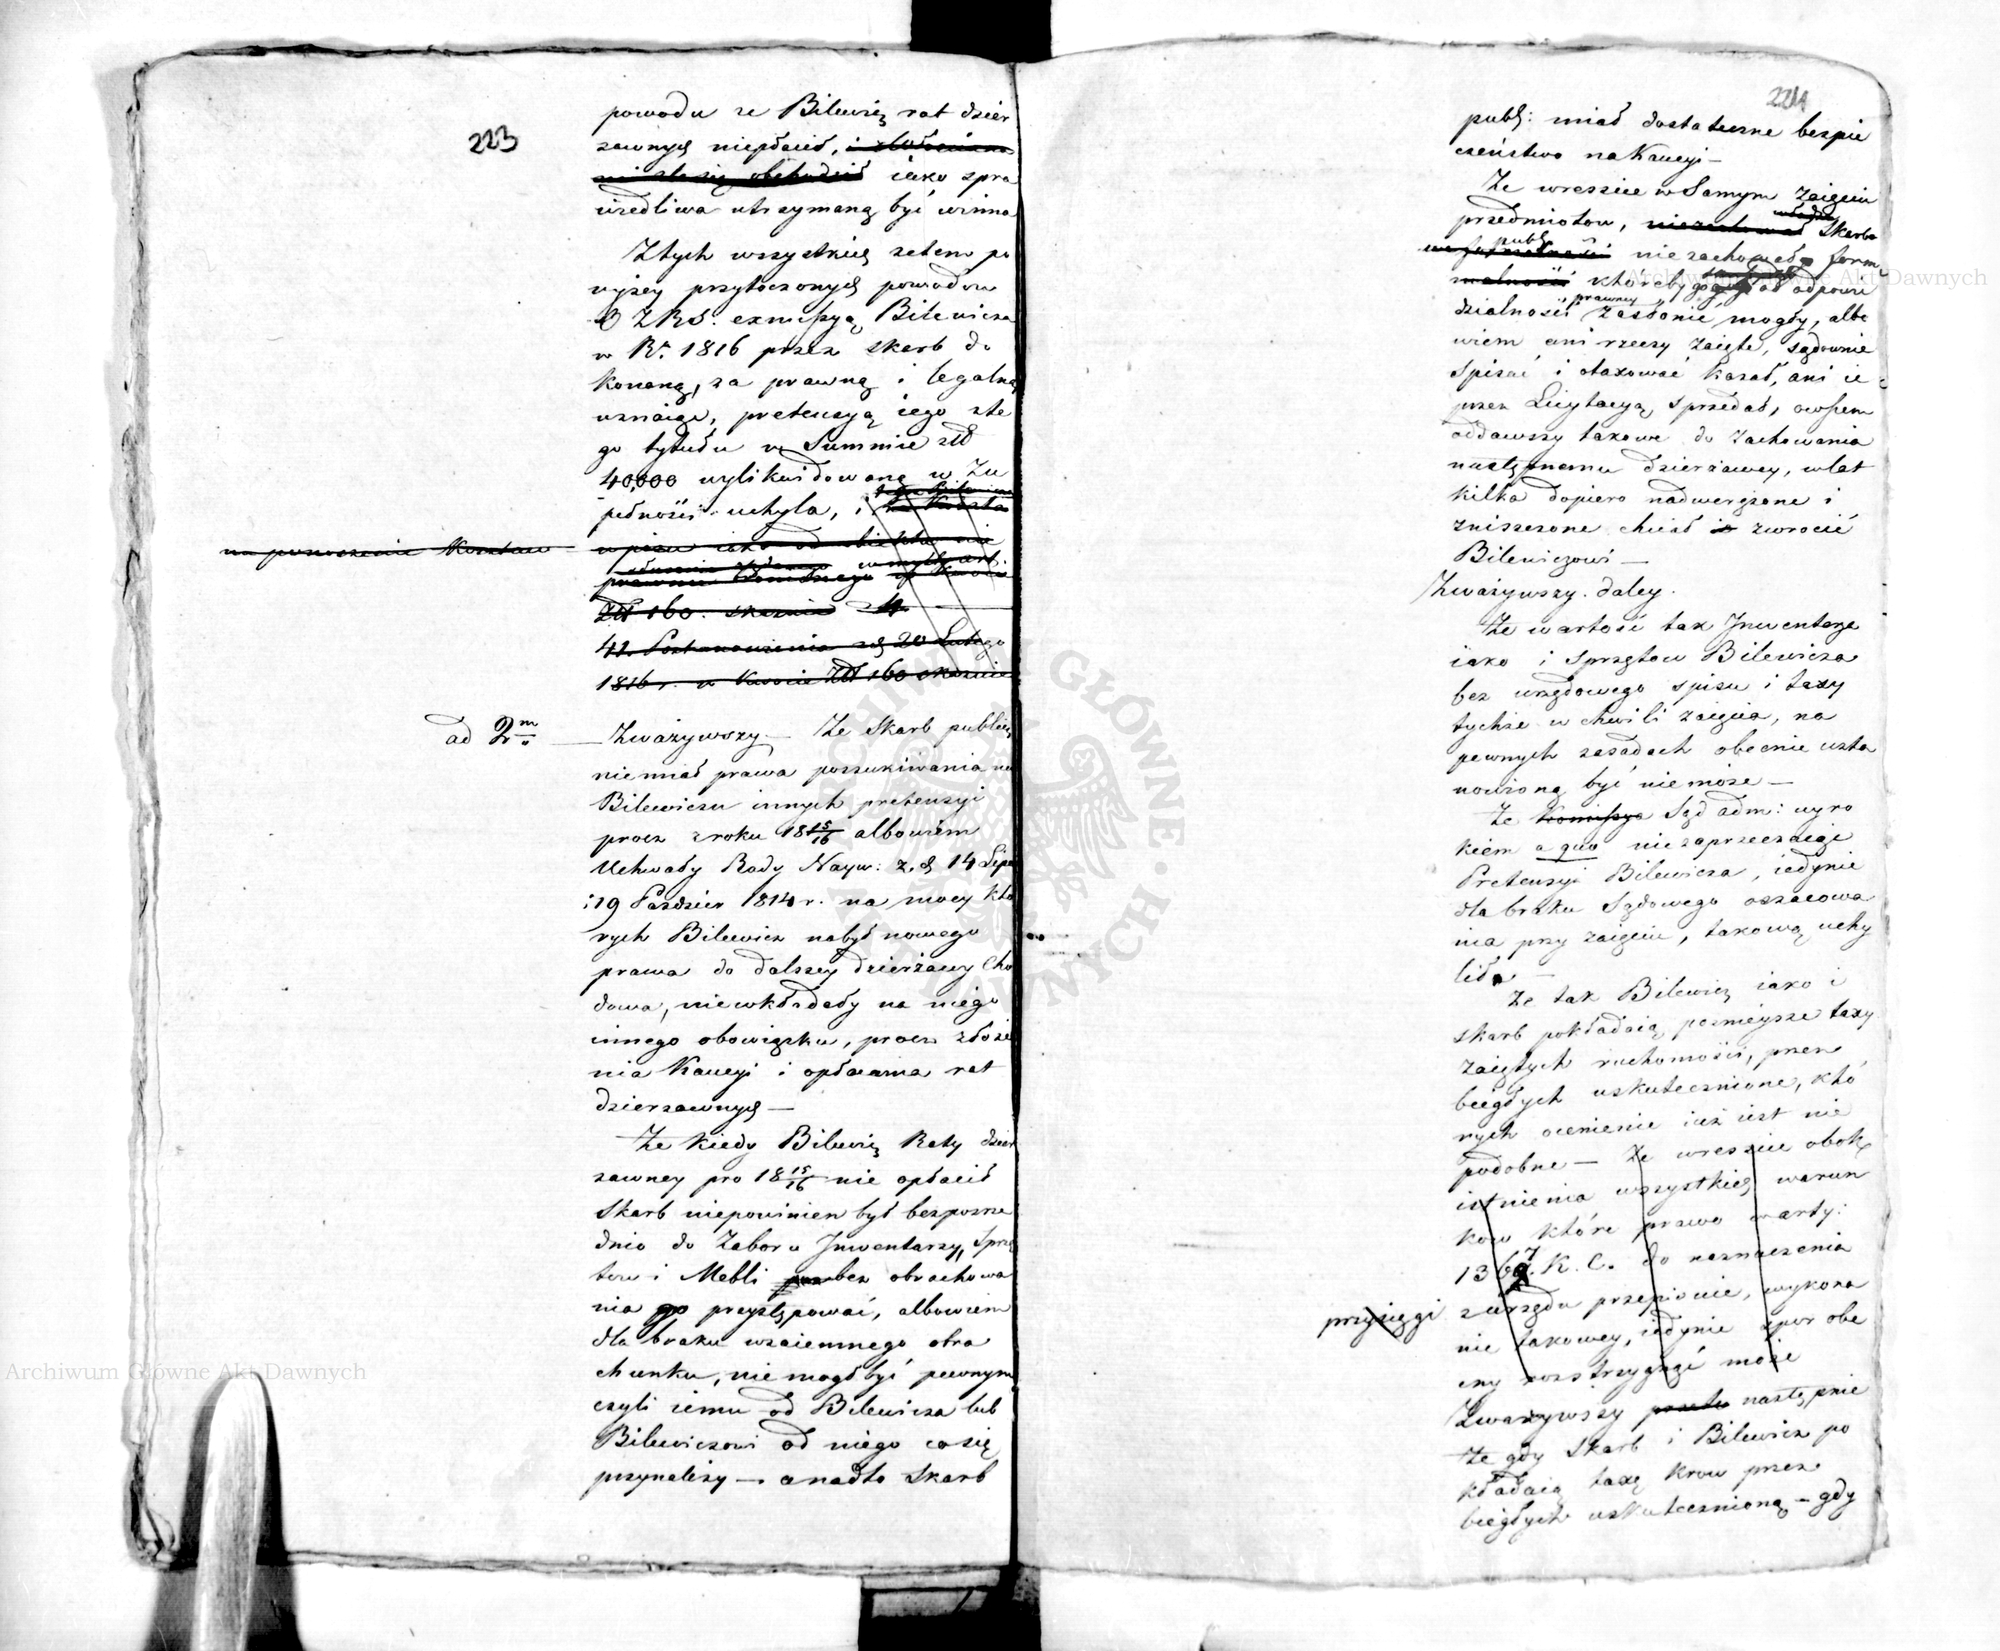 223
powodu że Bilewicz rat dzier
żawnych niepłacił, i
iako spra
wiedliwa utrzymaną być winna
Z tych wszystkich zatem po
wyżey przytoczonych powodów
exmissyą Bilewicza
w R. 1816 przez skarb do
konaną, za prawną i legalną
uznaiąc, pretensyą iego z te
go tytułu w Summie zlł
40,000 wylikwidowaną w Zu
pełności uchyla, i
na ponoszenie Kosztow
wpisu iako od obiektu nie
prawnie
Zlł 160. skazuie
41. Postanowienia z d 20 Lutego
1816 r. w kwocie Zlł 160 skazuie
ad 2m — Zważywszy — Że Skarb publiczn
niemiał prawa poszukiwania na
Bilewiczu innych pretensyi
procz z roku 18 15/16 albowiem
Uchwały Rady Nayw: z d 14 Lipca
i 19 Paździer 1814 r. na mocy któ
rych Bilewicz nabył nowego
prawa do dalszey dzierżawy Cho
dowa, niewkładały na niego
innego obowiązku, procz złoże
nia Kaucyi i opłacania rat
dzierżawnych —
Że kiedy Bilewicz Raty dzier
żawney pro 18 15/16 nie opłacił
Skarb niepowinien był bezposre
dnio do Zaboru Jnwentarzy, Sprzę
tow i Mebli bez obrachowa
nia przystępować, albowiem
dla braku wzaiemnego obra
chunku, nie mogł być pewnym
czyli iemu od Bilewicza lub
Bilewiczowi od niego co się
przynależy — a nadto Skarb
224
publ: miał dostateczne bezpie
czeństwo na Kaucyi —
Że wreszcie w Samym Zaięciu
przedmiotow, niezachował władza Skarbo
publ niezachował form
malności któreby go od odpowie
dzialności prawney zasłonić mogły, albo
wiem ani rzeczy zaięte, sądownie
spisać i otaxować kazał, ani ie
przez Licytacyą sprzedał, owszem
oddawszy takowe do zachowania
następnemu dzierżawcy, w lat
kilka dopiero nadwerężone i
zniszczone chciał zwrócić
Bilewiczowi —
Zważywszy. daley.
Że wartość tak Jnwentarza
iako i Sprzętow Bilewicza
bez urzędowego spisu i taxy
tychże w chwili zaięcia, na
pewnych zasadach obecnie usta
nowioną być nie może —
Że Komissya Sąd adm: wyro
kiem a quo niezaprzeczaiąc
Pretensyi Bilewicza, iedynie
dla braku Sądowego oszacowa
nia przy zaięciu, takową uchy
liła —
Że tak Bilewicz iako i
skarb pokładaią poznieysze taxy
zaiętych ruchomości, przez
biegłych uskutecznione, któ
rych ocenienie iuż iest nie
podobne — Że wreszcie obok
istnienia wszystkich warun
kow które prawo w arty:
1367. K. C. do naznaczenia
przysięgi
z urzędu przepisuie, wykona
nie takowey, iedynie spor obe
cny rozstrzygnąć może
Zważywszy przeto następnie
Że gdy Skarb i Bilewicz po
kładaią taxę krow przez
biegłych uskutecznioną — gdy
Archiwum Główne Akt Dawnych
Archiwum Główne Akt Dawnych